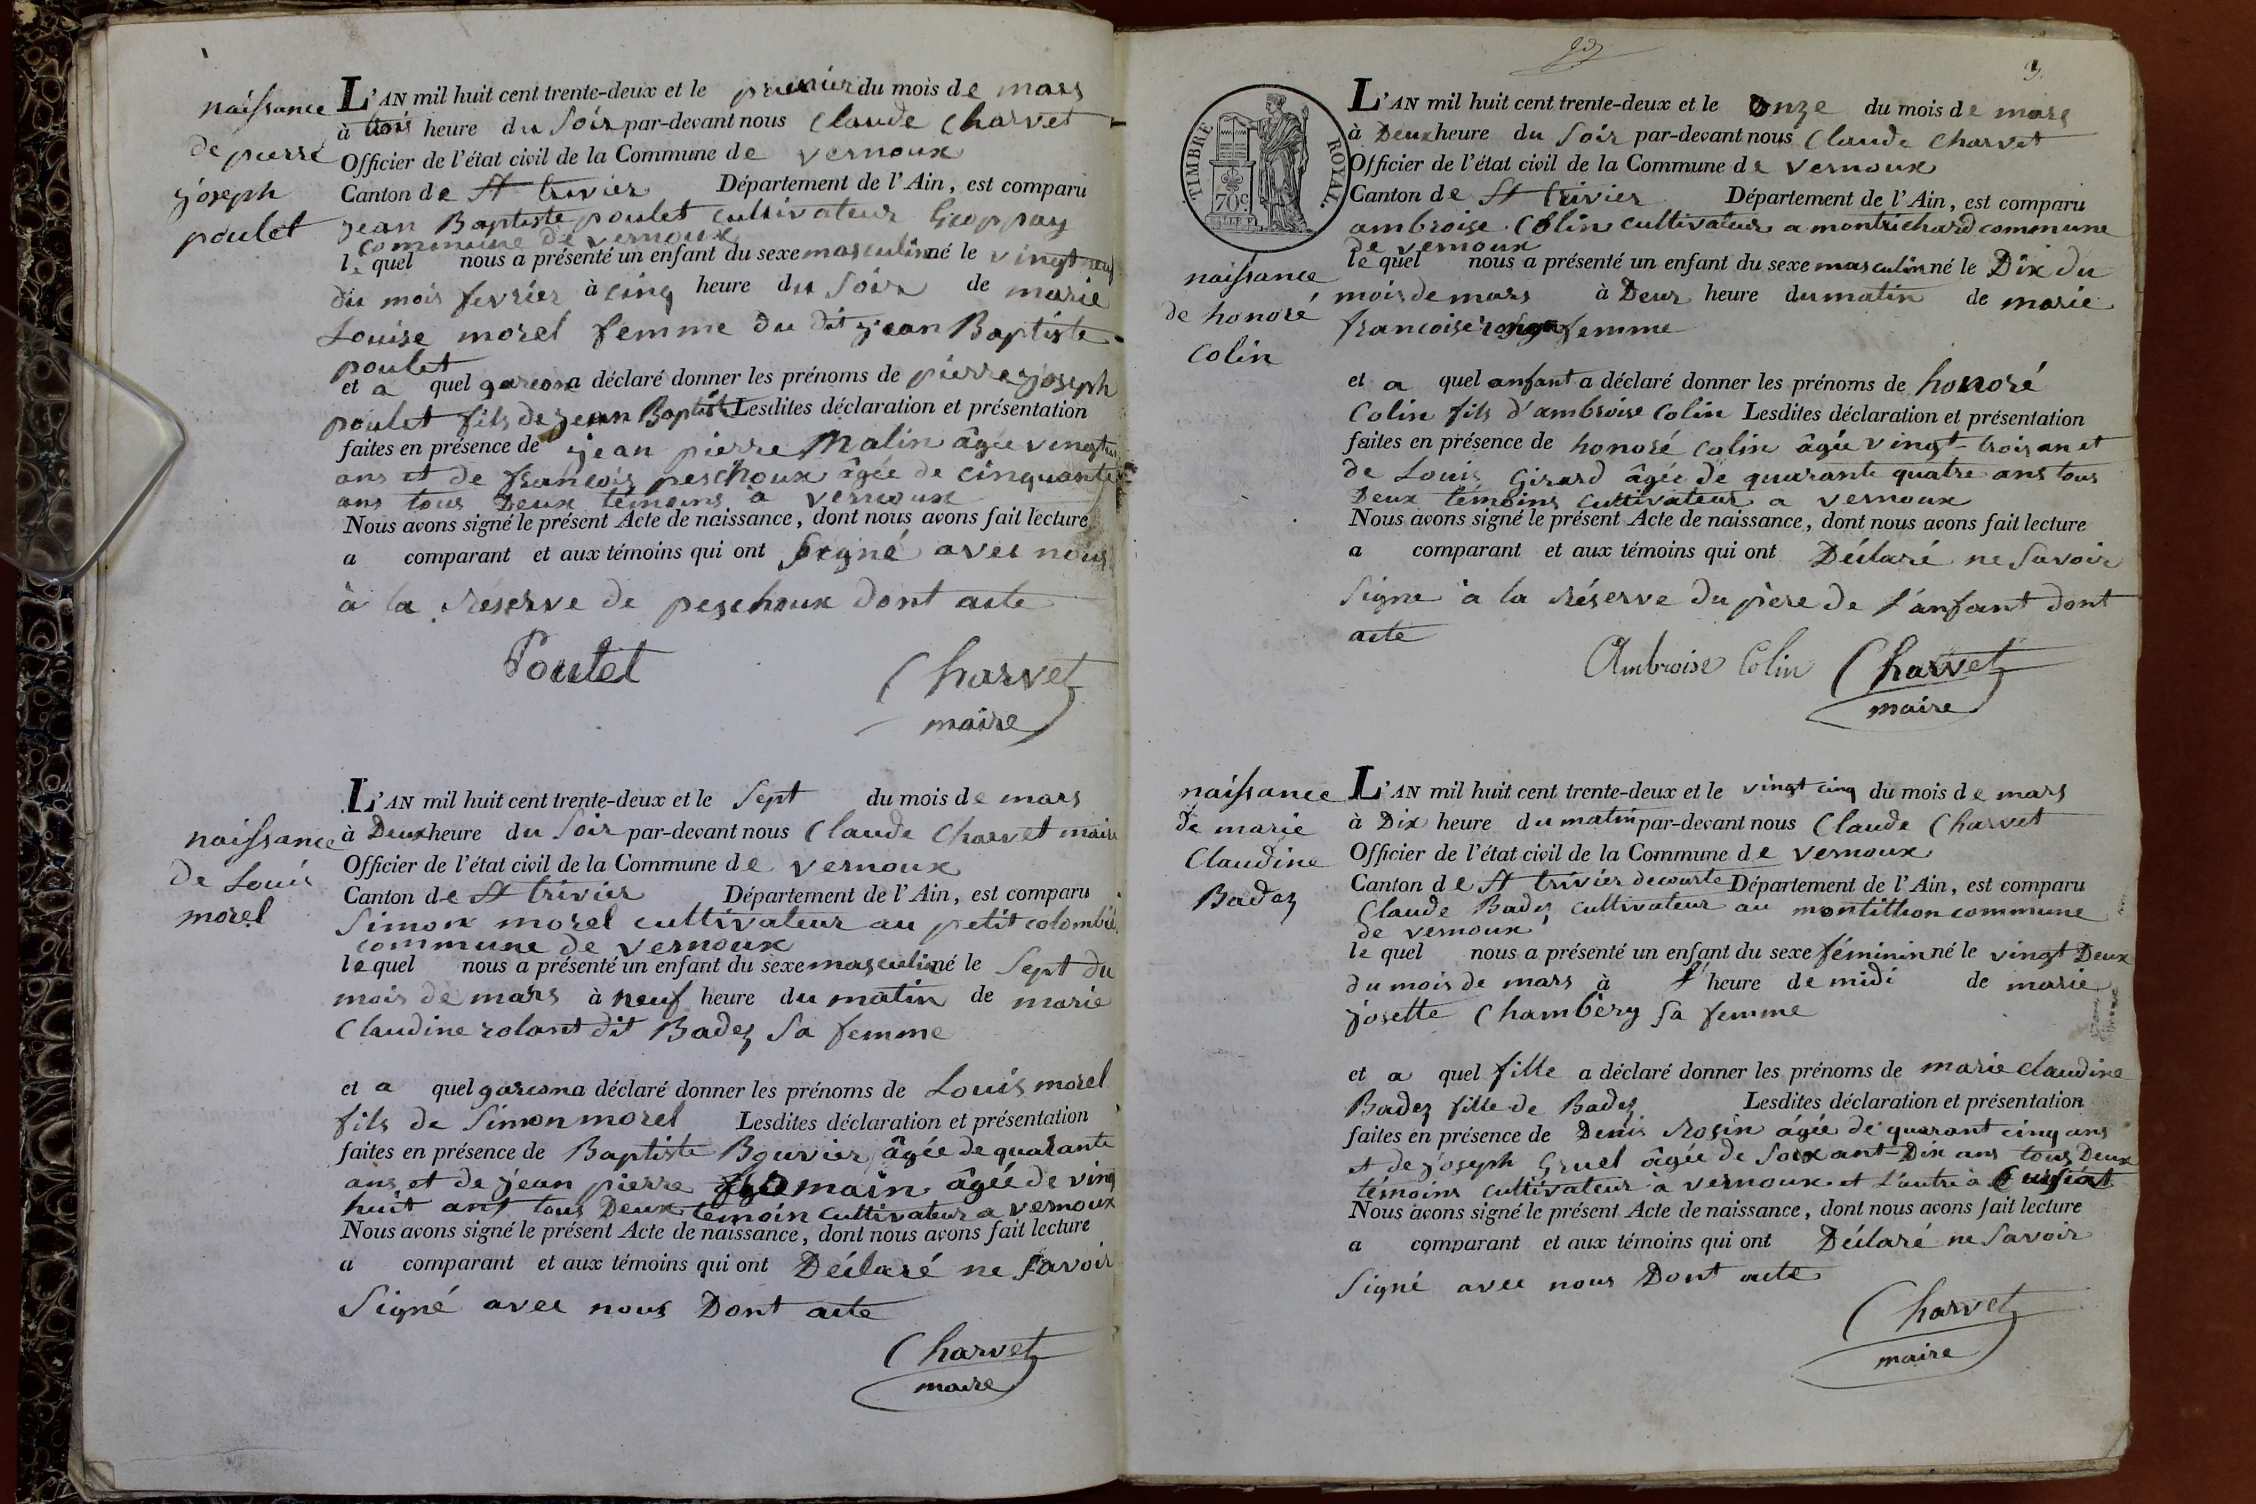 naissance
de pierre
joseph
poulet
L'AN mil huit cent trente-deux et le premier du mois de mars
à trois heure du Soir par-devant nous Claude Charvet
Officier de l'état civil de la Commune de vernoux
Canton de St trivier Département de l'Ain, est comparu
jean Baptiste poulet cultivateur
commune de vernoux
le quel nous a présenté un enfant du sexe masculin né le vingt neuf
du mois fevrier à cinq heure du Soir de marie
Louise morel femme du dit jean Baptiste
poulet
et a quel garcon a déclaré donner les prénoms de pierre joseph
poulet fils de jean Baptiste Lesdites déclaration et présentation
faites en présence de jean pierre Malin âgée vingt
ans et de francois peschoux âgée de cinquante
ans tous Deux témoins a vernoux
Nous avons signé le présent Acte de naissance, dont nous avons fait lecture
a comparant et aux témoins qui ont Signé avec nous
à la réserve de peschoux dont acte
Poulet Charvet
maire
naissance
de Louis
morel
L'AN mil huit cent trente-deux et le Sept du mois de mars
à Deux heure du Soir par-devant nous Claude Charvet maire
Officier de l'état civil de la Commune de vernoux
Canton de St trivier Département de l'Ain, est comparu
Simon morel cultivateur au petit colombier
commune de vernoux
le quel nous a présenté un enfant du sexe masculin né le Sept du
mois de mars à neuf heure du matin de marie
Claudine rolant dit Badez Sa femme
et a quel garcon a déclaré donner les prénoms de Louis morel
fils de Simon morel Lesdites déclaration et présentation
faites en présence de Baptiste Bouvier âgée de quarante
ans et de jean pierre âgée de ving
huit ant tous Deux temoin cultivateur a vernoux
Nous avons signé le présent Acte de naissance, dont nous avons fait lecture
a comparant et aux témoins qui ont Déclaré ne Savoir
Signé avec nous Dont acte
Charvet
maire
TIMBRE ROYAL.
70c
L'AN mil huit cent trente-deux et le onze du mois de mars
à Deux heure du Soir par-devant nous Claude Charvet
Officier de l'état civil de la Commune de vernoux
Canton de St trivier Département de l'Ain, est comparu
ambroise Colin cultivateur a montrichard commune
de vernoux
le quel nous a présenté un enfant du sexe masculin né le Dix du
mois de mars à Deux heure du matin de marie
francoise femme
naissance
de honoré
Colin
et a quel anfant a déclaré donner les prénoms de honoré
Colin fils d'ambroise Colin Lesdites déclaration et présentation
faites en présence de honoré colin âgée vingt trois an et
de Louis Girard âgée de quarante quatre ans tous
Deux témoins cultivateur a vernoux
Nous avons signé le présent Acte de naissance, dont nous avons fait lecture
a comparant et aux témoins qui ont Déclaré ne Savoir
Signe à la réserve du père de l'anfant dont
acte
Ambroise Colin Charvet
maire
naissance
de marie
Claudine
Badez
L'AN mil huit cent trente-deux et le vingt cinq du mois de mars
à Dix heure du matin par-devant nous Claude Charvet
Officier de l'état civil de la Commune de vernoux
Canton de St trivier de courte Département de l'Ain, est comparu
Claude Badez cultivateur au montillon commune
de vernoux
le quel nous a présenté un enfant du sexe féminin né le vingt Deux
du mois de mars à l' heure de midi de marie
josette Chambéry Sa femme
et a quel fille a déclaré donner les prénoms de marie claudine
Badez fille de Badez Lesdites déclaration et présentation
faites en présence de Denis Rosin âgée de quarant cinq ans
et de joseph Gruel âgée de Soixant-Dix ans tous Deux
témoins cultivateur à vernoux et l'autre à Curciat
Nous avons signé le présent Acte de naissance, dont nous avons fait lecture
a comparant et aux témoins qui ont Déclaré ne Savoir
Signé avec nous Dont acte
Charvet
maire